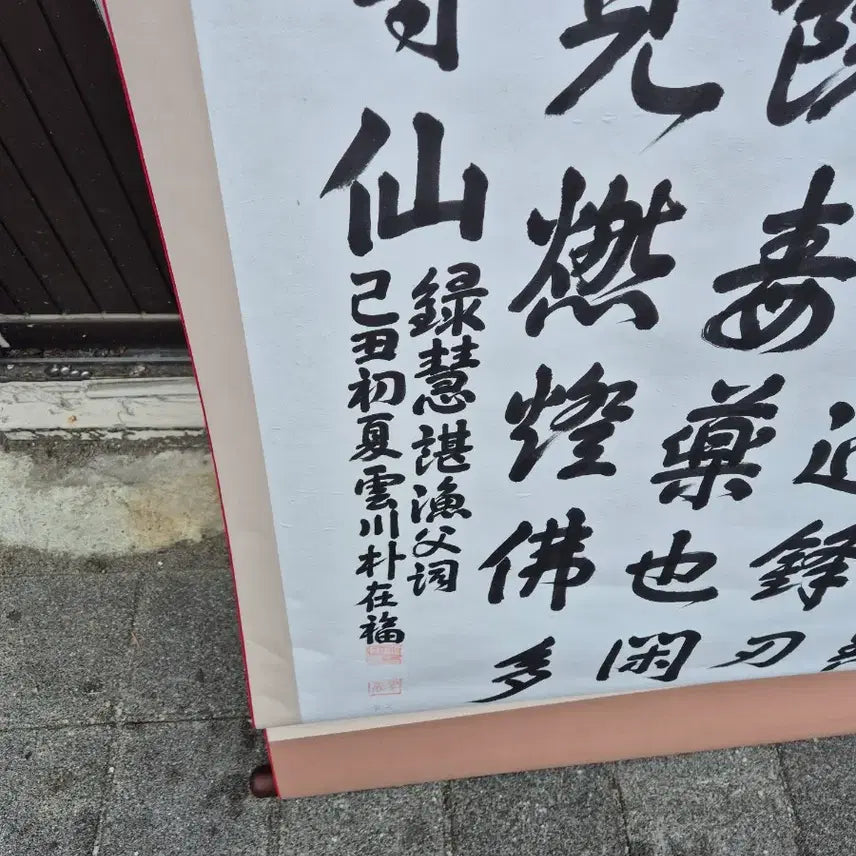 鋒刃
毒藥也閑
見燃燈佛多
仙
録慧諶漁父詞
己丑初夏雲川朴在福